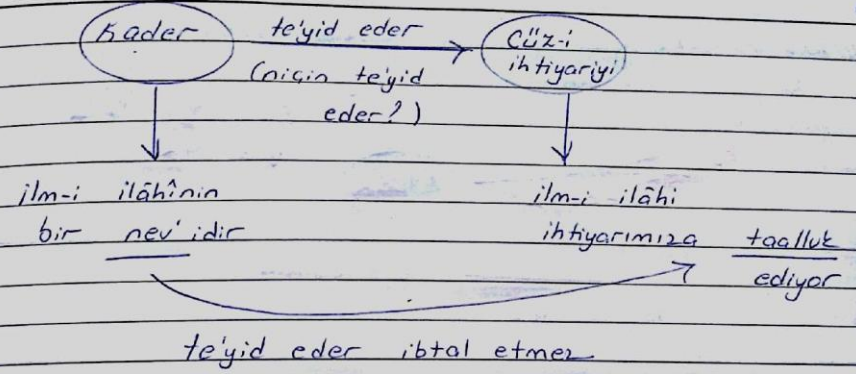 Kader
te'yid eder
(niçin te'yid
eder?)
Cüz-i
ihtiyariyi
ilm-i ilâhînin
bir nev'idir
ilm-i ilâhi
ihtiyarımıza taalluk
ediyor
te'yid eder ibtal etmez